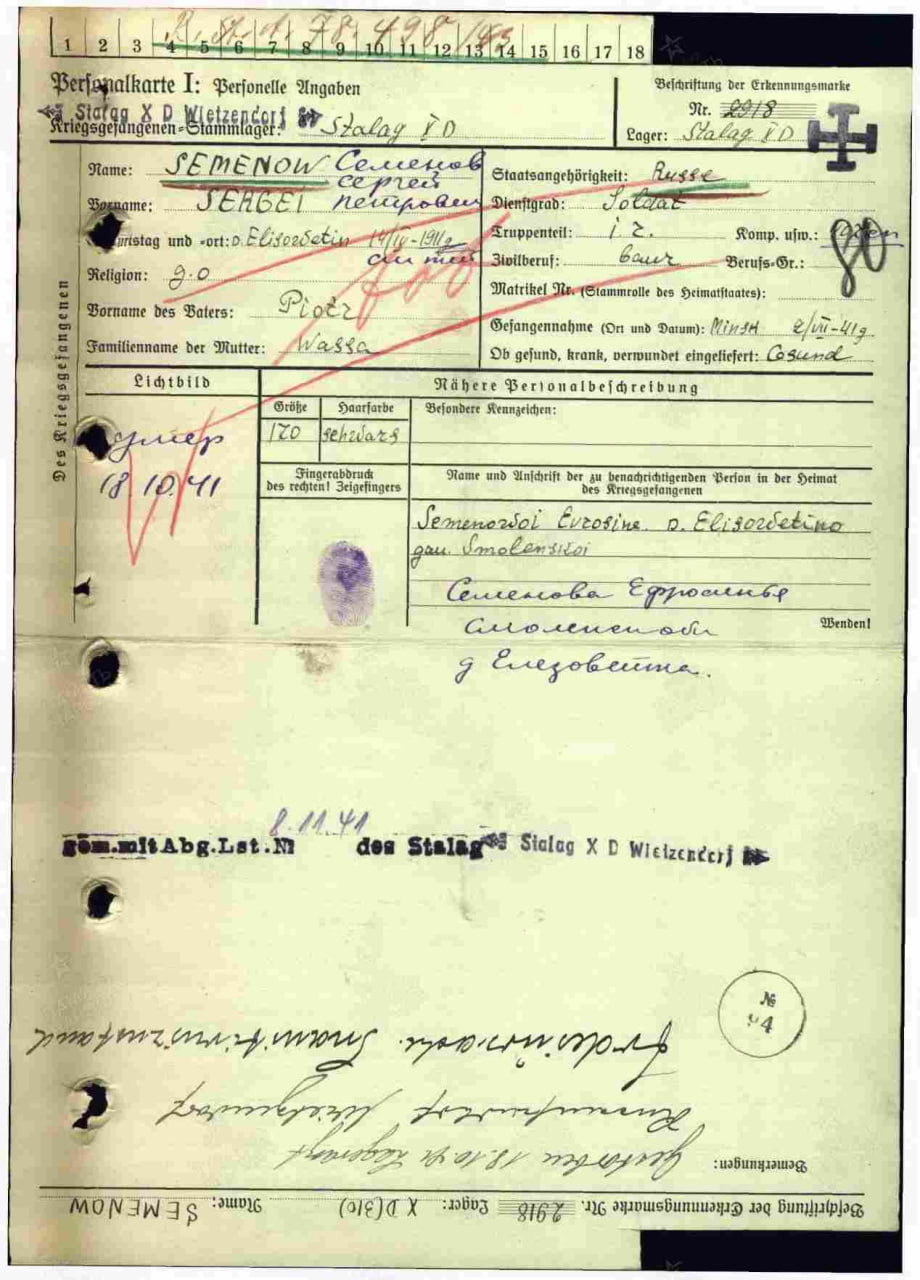 R. St. A. 78.498/143
1 2 3 4 5 6 7 8 9 10 11 12 13 14 15 16 17 18
Personalkarte I: Personelle Angaben
Stalag X D Wietzendorf
Kriegsgefangenen-Stammlager: Stalag X D
Beschriftung der Erkennungsmarke
Nr. 2918
Lager: Stalag X D
Des Kriegsgefangenen
Name: SEMENOW Семенов
Vorname: SERGEI Сергей Петрович
Geburtstag und -ort: D. Elisowetin 14/IV-1911г
Religion: g.o
Vorname des Vaters: Piotr
Familienname der Mutter: Wassa
Staatsangehörigkeit: Russe
Dienstgrad: Soldat
Truppenteil: i. r. Komp. usw.:
Zivilberuf: baur Berufs-Gr.: 80
Matrikel Nr. (Stammrolle des Heimatstaates):
Gefangennahme (Ort und Datum): Minsk 2/VII-41g
Ob gesund, krank, verwundet eingeliefert: Gesund
tot
Lichtbild
умер
18.10.41
Nähere Personalbeschreibung
Größe Haarfarbe Besondere Kennzeichen:
170 schwars
Fingerabdruck
des rechten! Zeigefingers
Name und Anschrift der zu benachrichtigenden Person in der Heimat
des Kriegsgefangenen
Semenowoi Evrosine D. Elisowetino
gau. Smolenskoi
Семенова Ефросинья
Смоленск обл
д Елезоветина.
Wenden!
8.11.41
gem.mit Abg.Lst.№ des Stalag Stalag X D Wietzendorf
№
94
Beschriftung der Erkennungsmarke Nr. 2918 Lager: X D (310) Name: SEMENOW
Bemerkungen: Gestorben 18.10.41 Lagerarzt
Russenfriedhof Wietzendorf
Todesursache: